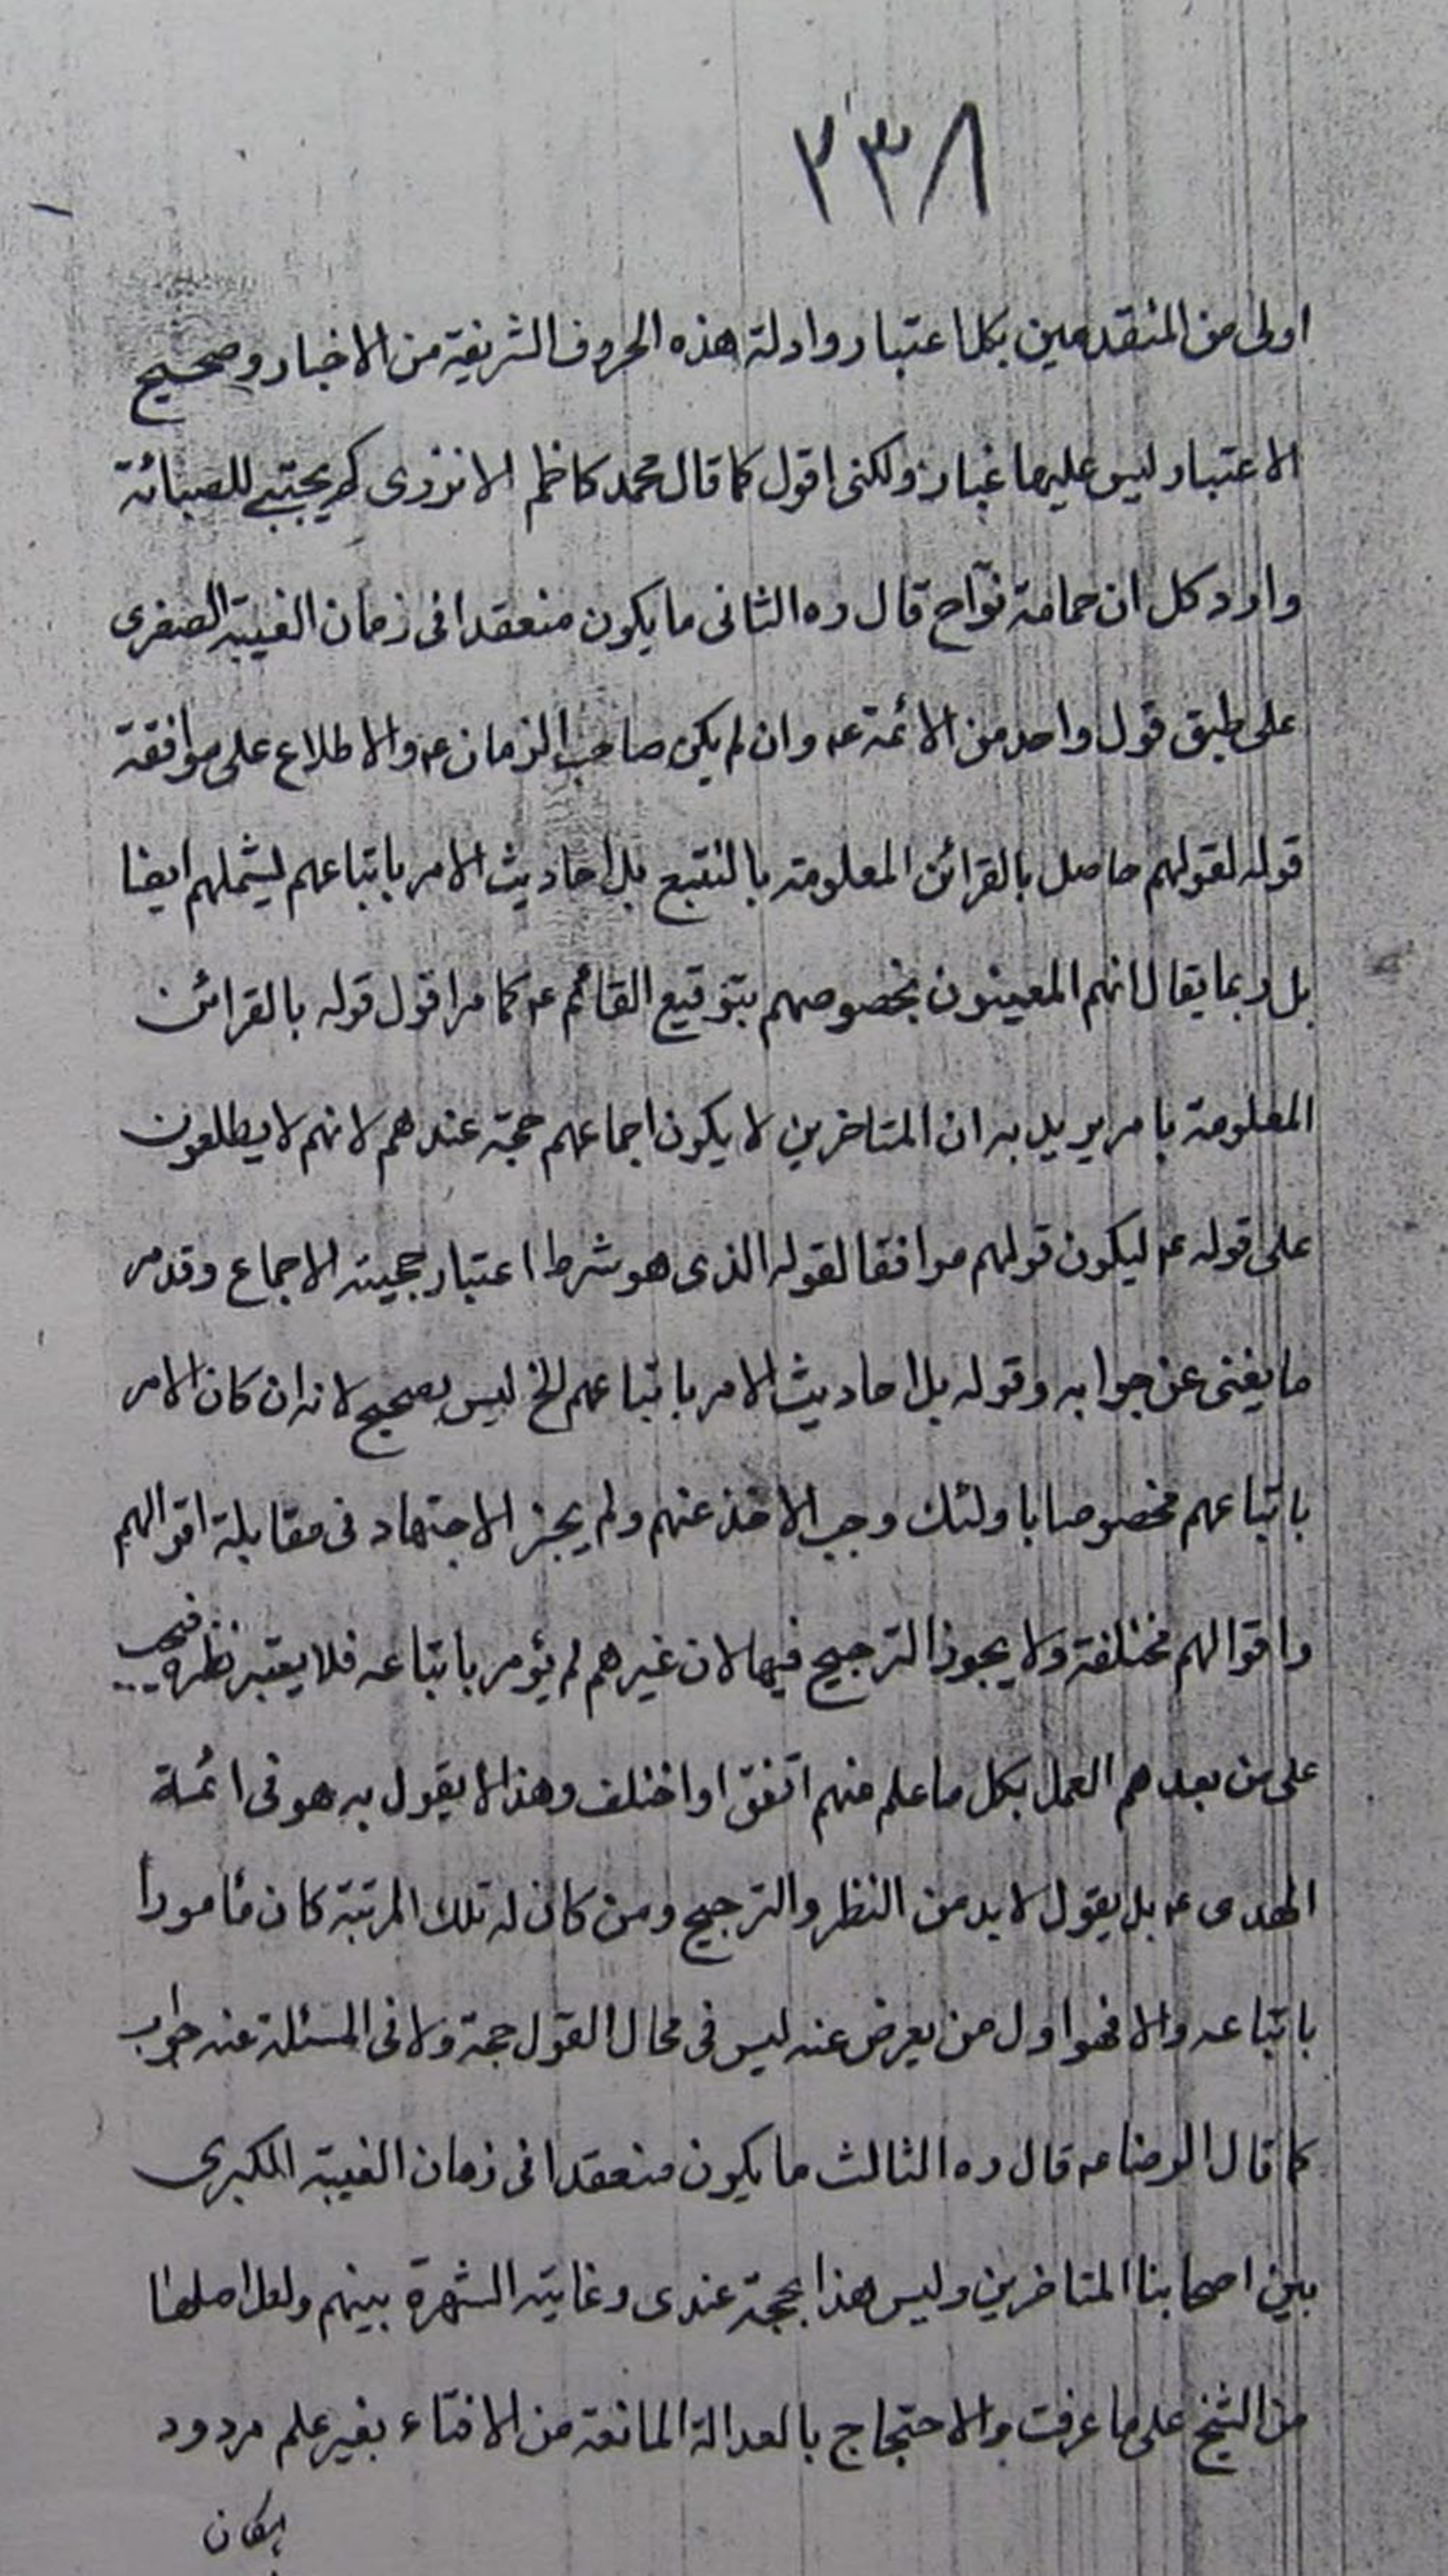 ٢٣٨
اولى من المتقدمين بكل اعتبار وادلة هذه الحروف الشريفة من الاخبار وصحيح
الاعتبار ليس عليها غبار ولكنى اقول كما قال محمد كاظم الازرى كم يجتبى للصبائة
وارد كل ان حمامة نوّاح قال ره الثانى ما يكون منعقدا فى زمان الغيبة الصغرى
على طبق قول واحد من الائمة ع وان لم يكن صاحب الزمان ع والاطلاع على موافقة
قوله لقولهم حاصل بالقرائن المعلومة بالتتبع بل احاديث الامر باتباعهم ليشملهم ايضا
بل ربما يقال انهم المعينون بخصوصهم بتوقيع القائم ع كما مر اقول قوله بالقرائن
المعلومة بامر يريد به ان المتاخرين لا يكون اجماعهم حجة عندهم لانهم لا يطلعون
على قوله ع ليكون قولهم موافقا لقوله الذى هو شرط اعتبار حجية الاجماع وقد مر
ما يغنى عن جوابه وقوله بل احاديث الامر باتباعهم الخ ليس بصحيح لانه ان كان الامر
باتباعهم مخصوصا باولئك وجب الاخذ عنهم ولم يجز الاجتهاد فى مقابلة اقوالهم
واقوالهم مختلفة ولا يجوز الترجيح فيها لان غيرهم لم يؤمر باتباعه فلا يعتبر نظره فيجب
على من بعدهم العمل بكل ما علم منهم اتفق او اختلف وهذا لا يقول به هو فى ائمة
الهدى ع بل يقول لا بد من النظر والترجيح ومن كان له تلك المرتبة كان مأمورا
باتباعه والا فهو اول من يعرض عنه ليس فى محال القول حجة ولا فى المسئلة عنه جواب
كما قال الرضا ع قال ره الثالث ما يكون منعقدا فى زمان الغيبة الكبرى
بين اصحابنا المتاخرين وليس هذا بحجة عندى وغايته الشهرة بينهم ولعل اصلها
من الشيخ على ما عرفت والاحتجاج بالعدالة المانعة من الافتاء بغير علم مردود